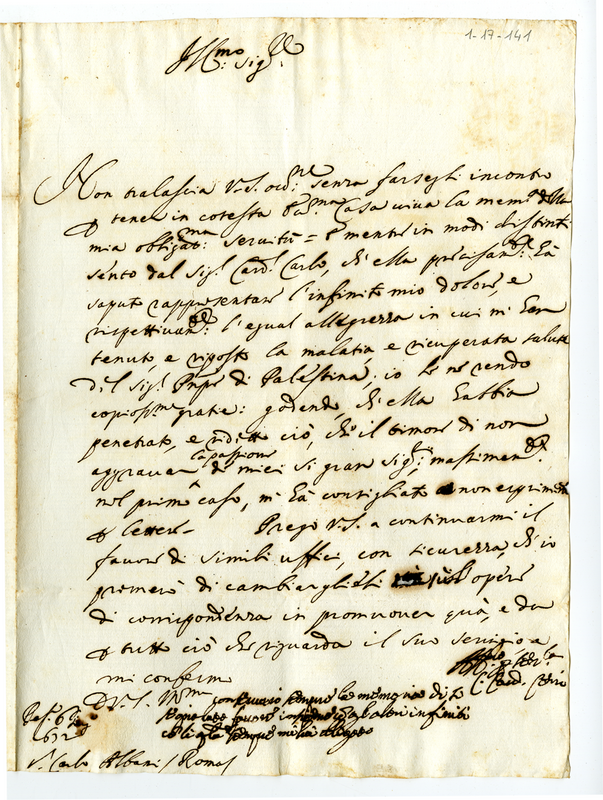 1-17-141
Ill.mo Sig.re
Non tralascia V.S. occ.ne senza farsegli incontro
tener in cotesta Ecc.ma Casa viva la mem.a della
mia obligat.ma servitù = mentre in modi distinti
sento dal Sig.r Card. Carlo, ch'ella precisam.te hà
saputo rappresentare l'infinito mio dolore, e
rispettivam.te l'egual allegrezza in cui mi han
tenuto, e riposto la malatia e ricuperata salute
del Sig.r Pnpe di Palestina; io le ne rendo
copios.me gratie: godendo, ch'ella habbia
penetrato, e ridetto ciò, che il timore di non
aggravar la passione di miei si gran Sig.ri; massimam.te
nel primo caso, mi hà consigliato a non esprimer
lettere - Prego V.S. a continuarmi il
favore di simili uffici, con sicurezza, ch'io
primerò di cambiarglieli opere
di corrispondenza in promuover quà, e da
tutto ciò che riguarda il suo servigio e
mi confermo
D V.S. Ill.ma conservio sempre la memoria di
favori infiniti
sempre obligato
Card.
Pes.o 6
1672
S.r Carlo Albani / Roma /